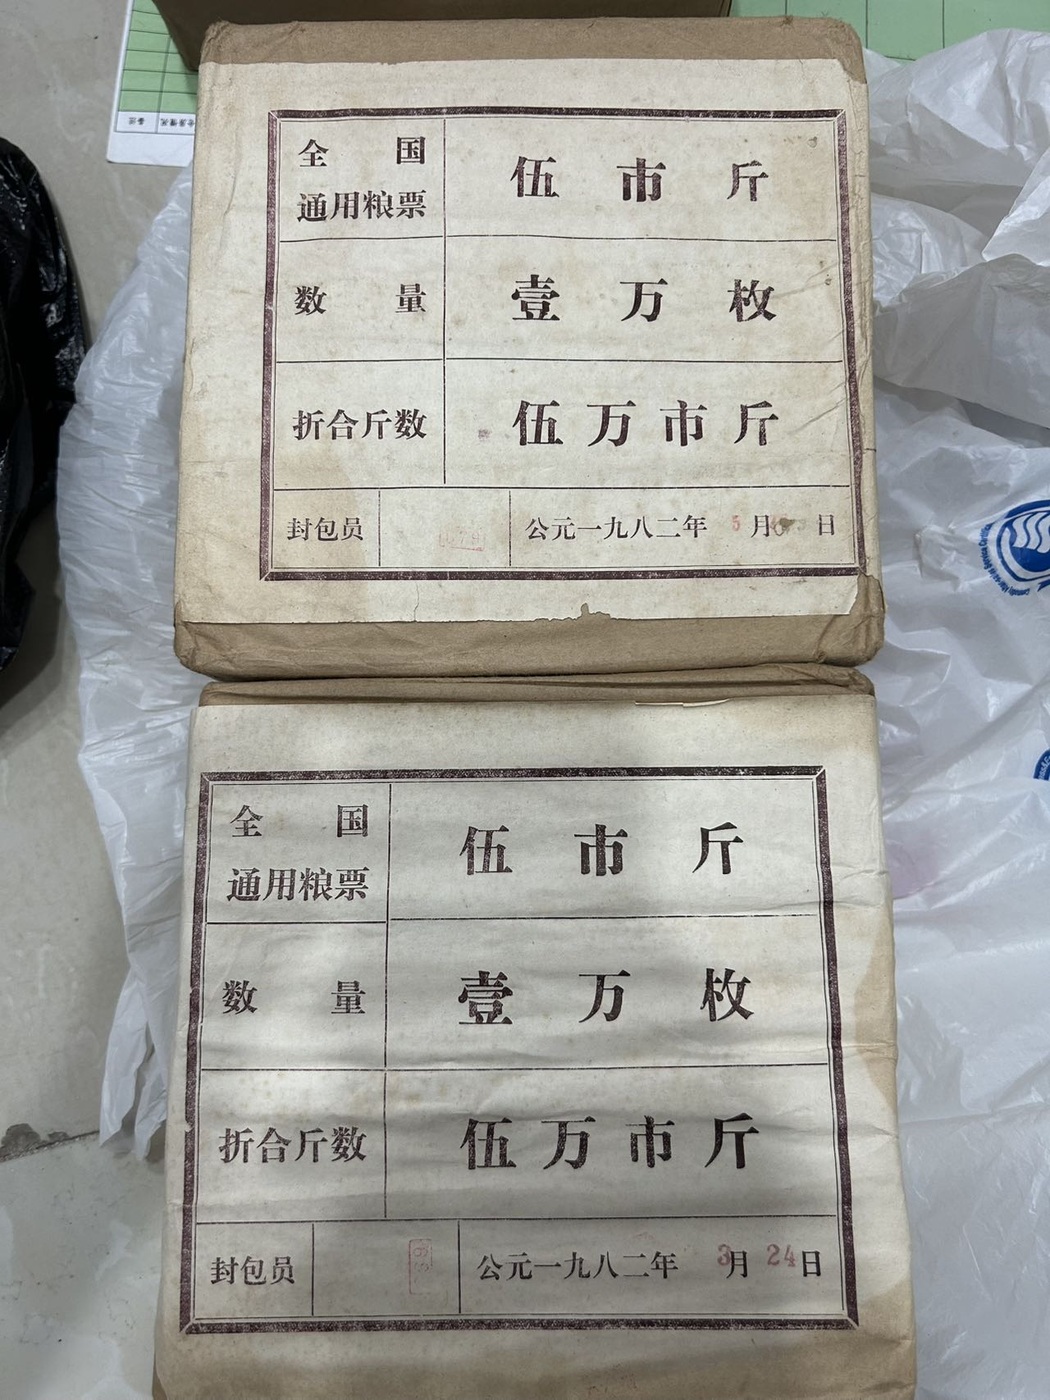 全国
通用粮票
伍市斤
数量
壹万枚
折合斤数
伍万市斤
封包员
公元一九八二年 5月 日
全国
通用粮票
伍市斤
数量
壹万枚
折合斤数
伍万市斤
封包员
公元一九八二年 3月24日
备注